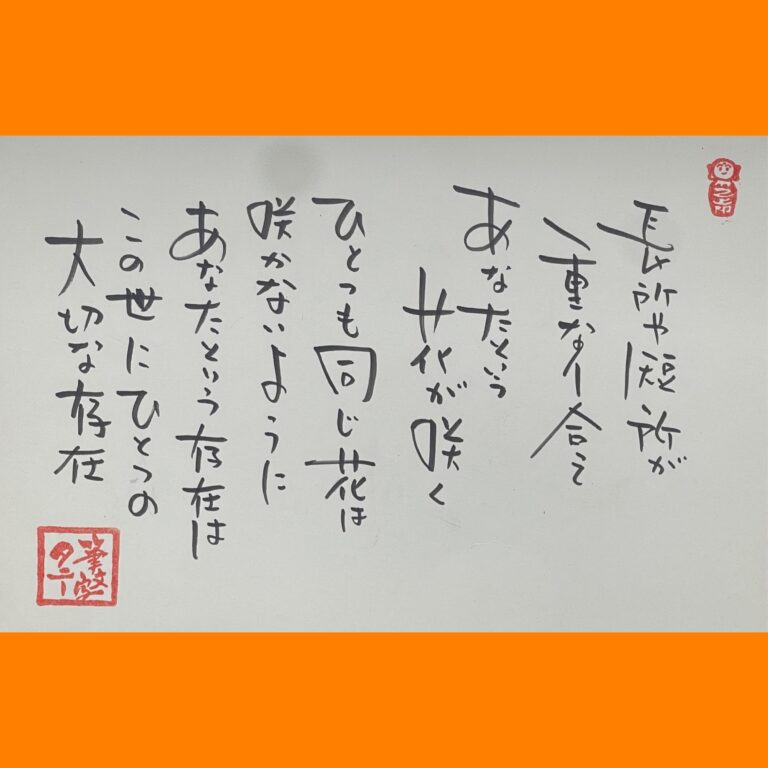 長所や短所が
重なり合って
あなたという
花が咲く
ひとつも同じ花は
咲かないように
あなたという存在は
この世にひとつの
大切な存在
筆
タニー